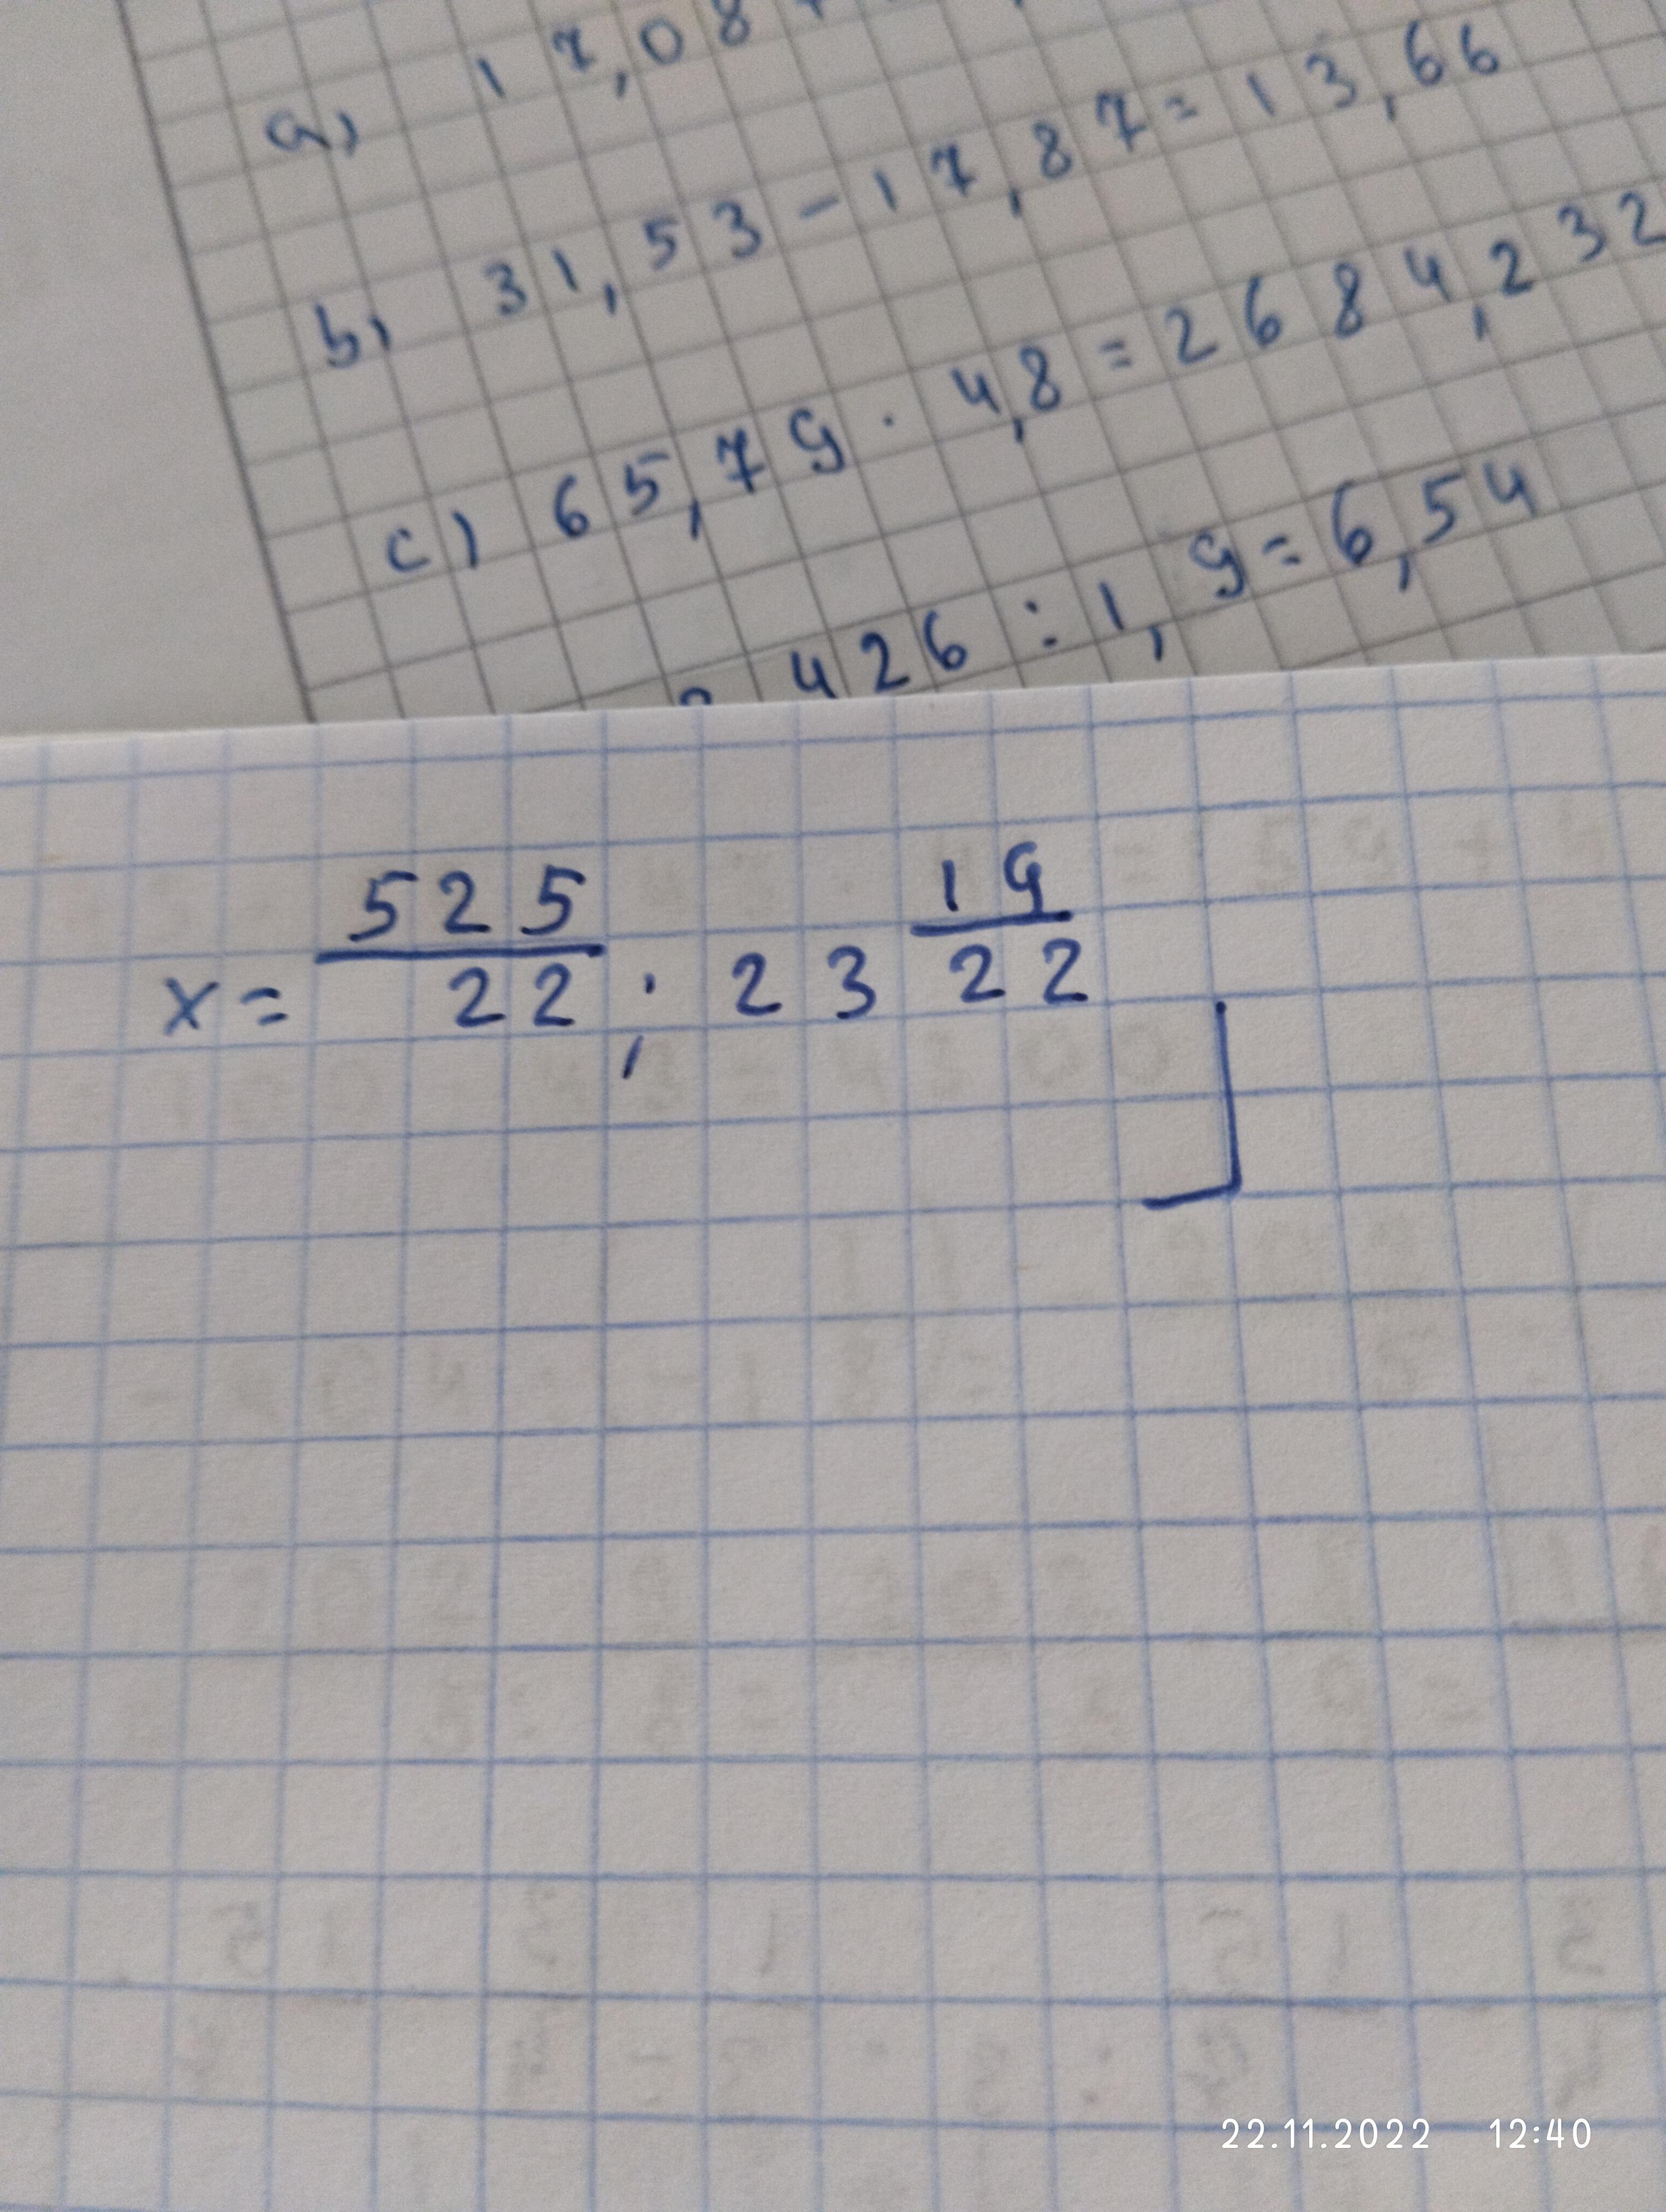 a) 17,08
b) 31,53 - 17,87 = 13,66
c) 65,79 · 4,8 = 2684,232
426 : 1,9 = 6,54
x = 525/22 ; 23 19/22
22.11.2022 12:40